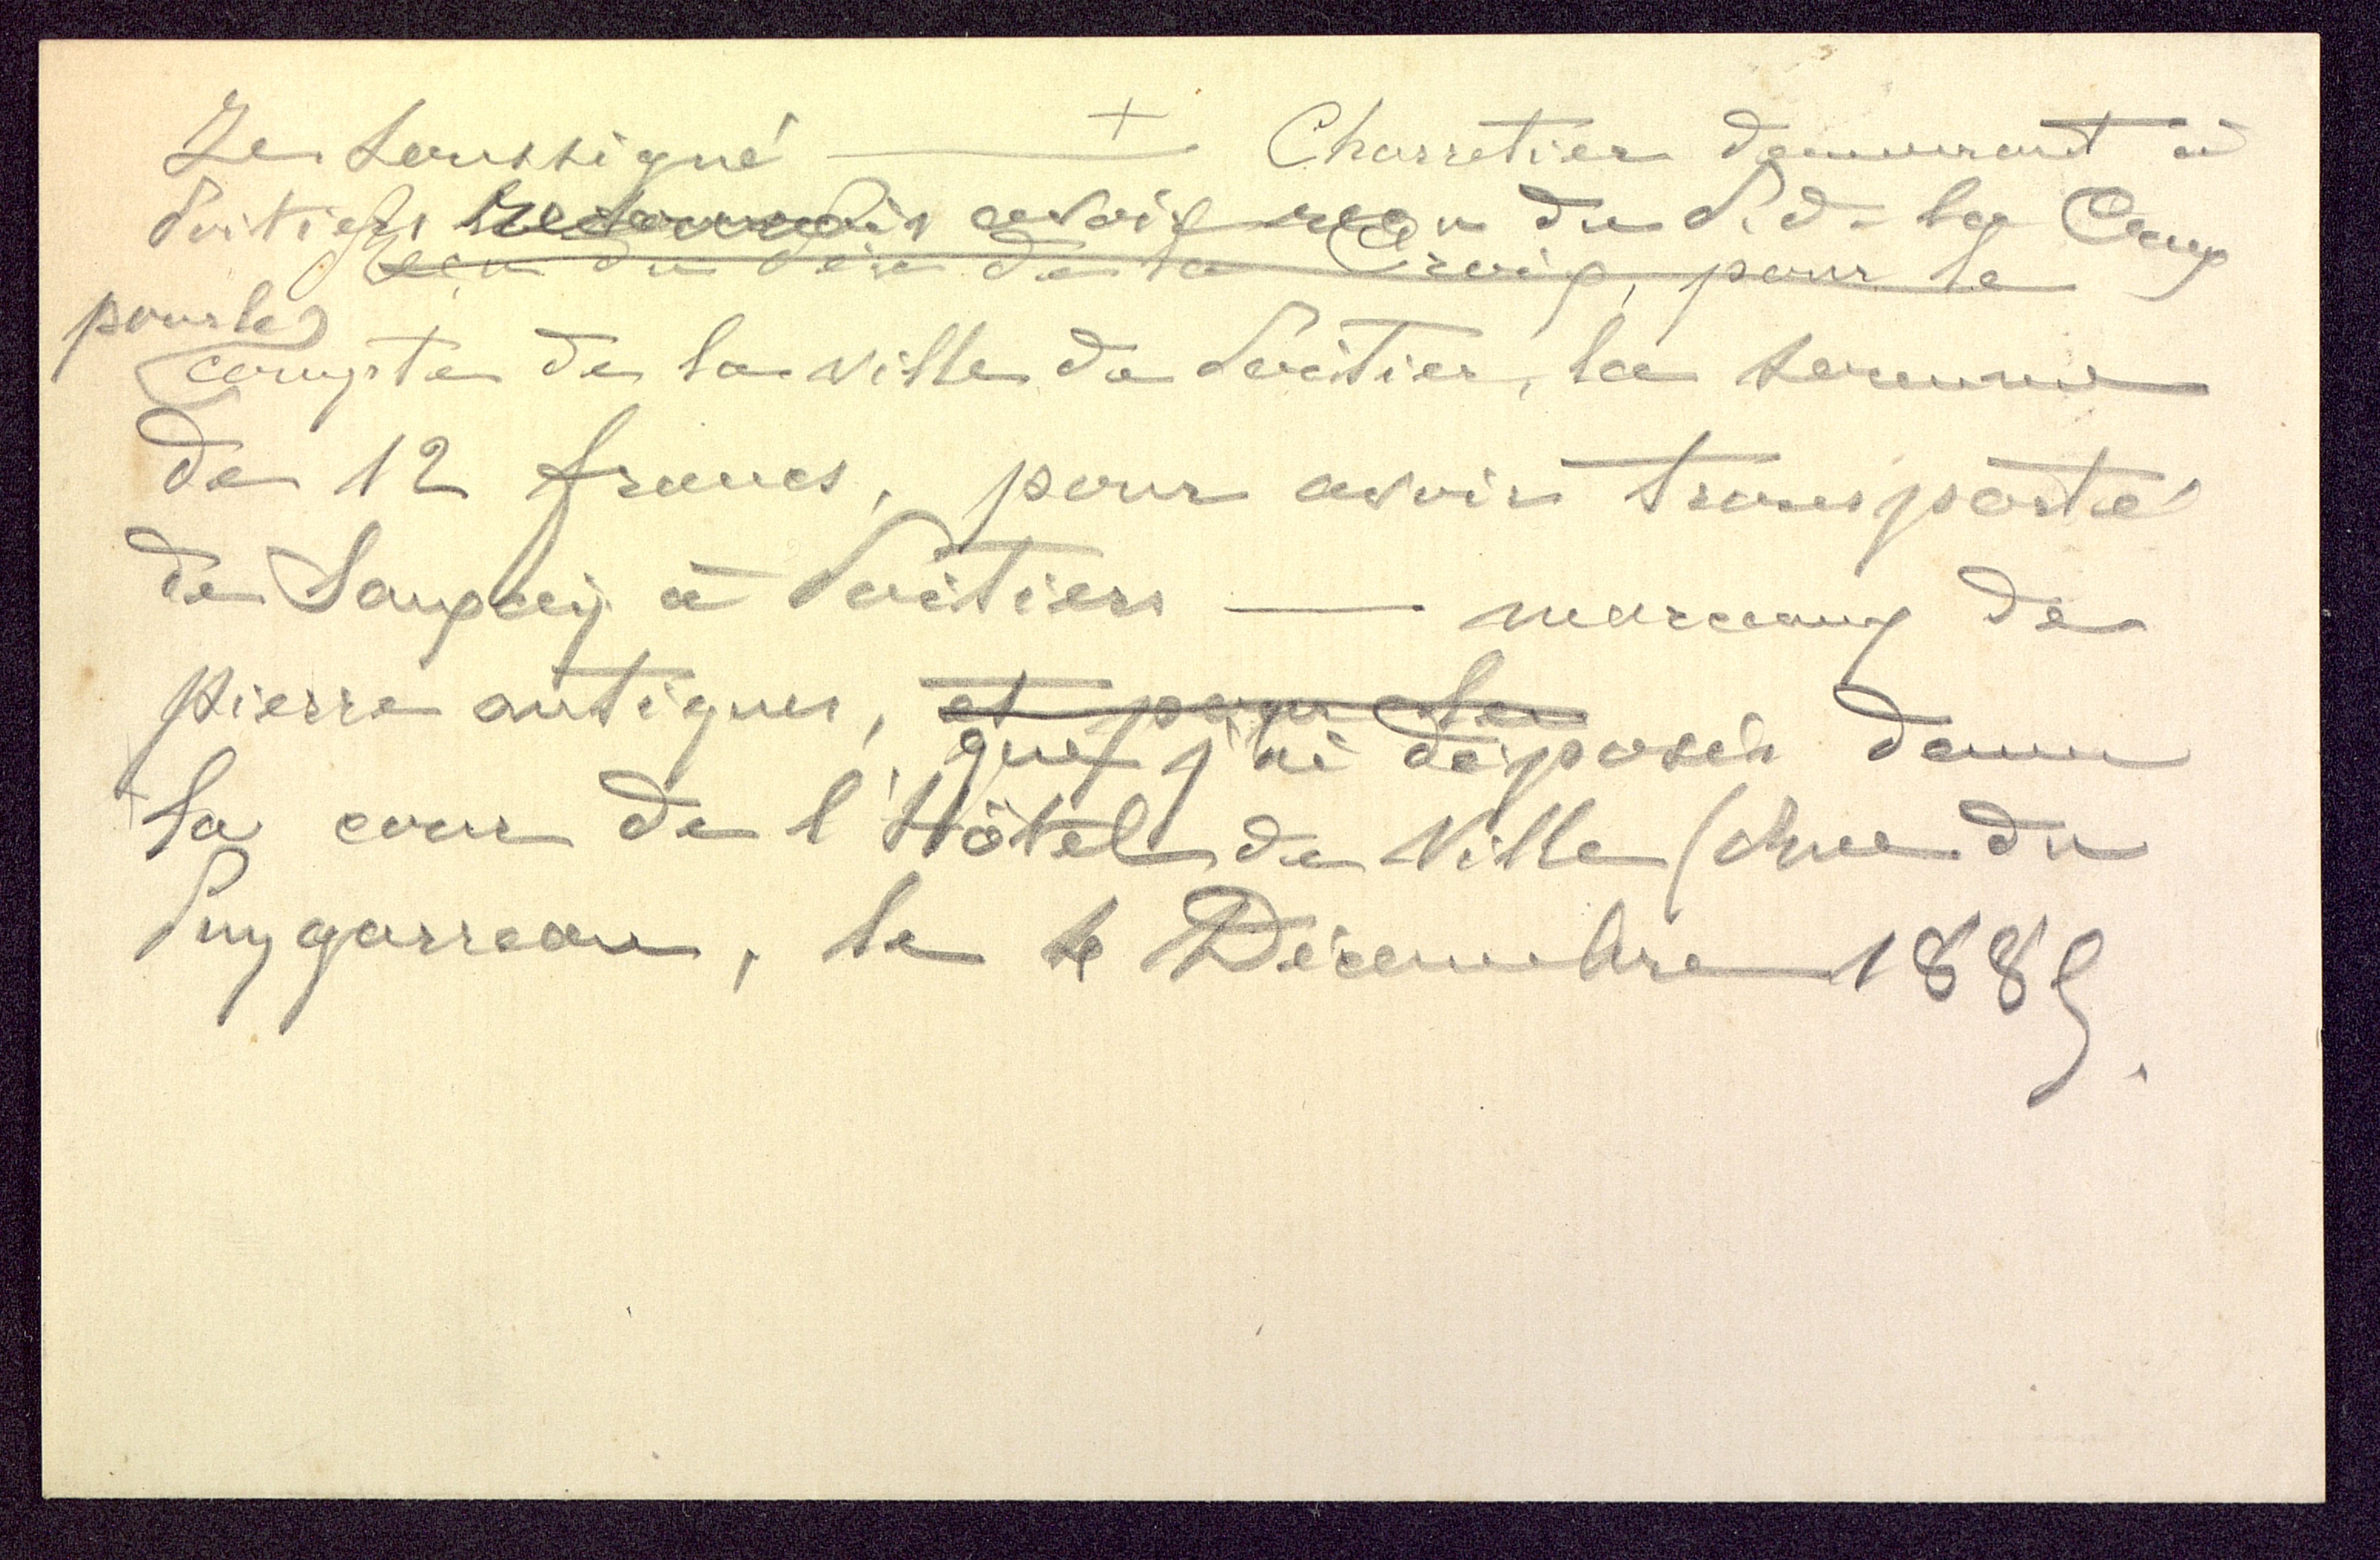 Je soussigné ——+— Charretier demeurant à
Poitiers reconnais avoir reçu du P. d. la Croix
Reçu du Père de la Croix, pour le
pour le
compte de la ville de Poitiers, la somme
de 12 francs, pour avoir transporté
de Sanxay à Poitiers —— morceaux de
pierre antiques, et pour les
que j'ai déposés dans
la cour de l'Hôtel de Ville (Rue du
Puygarreau, le 4 Décembre 1889.